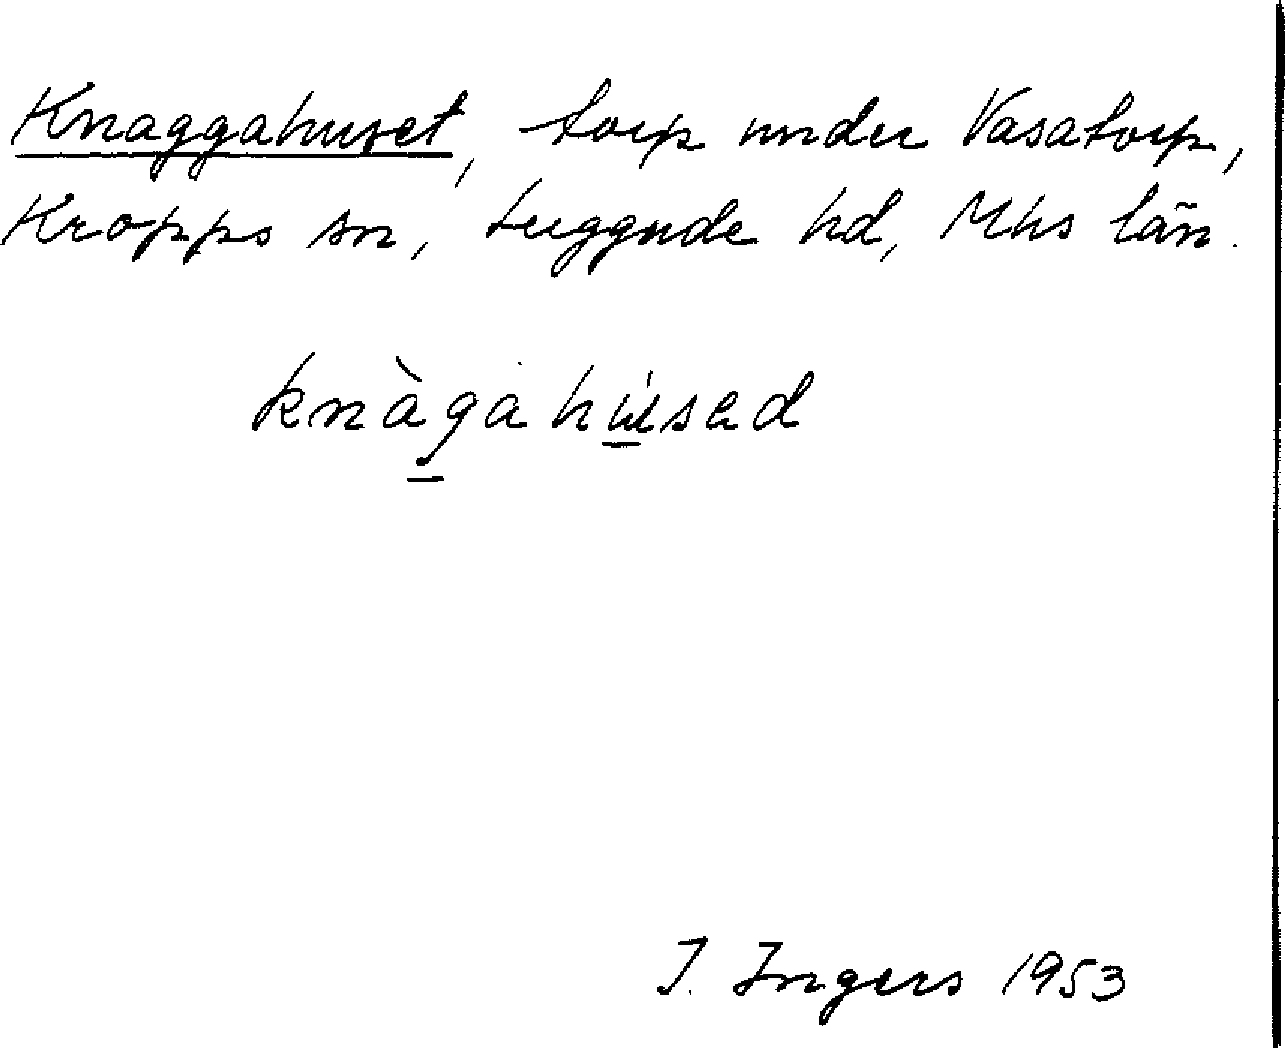 Knaggahuset, torp under Vasatorp,
Kropps sn, Luggude hd, Mhs län.
knàgahúsad
I. Ingers 1953